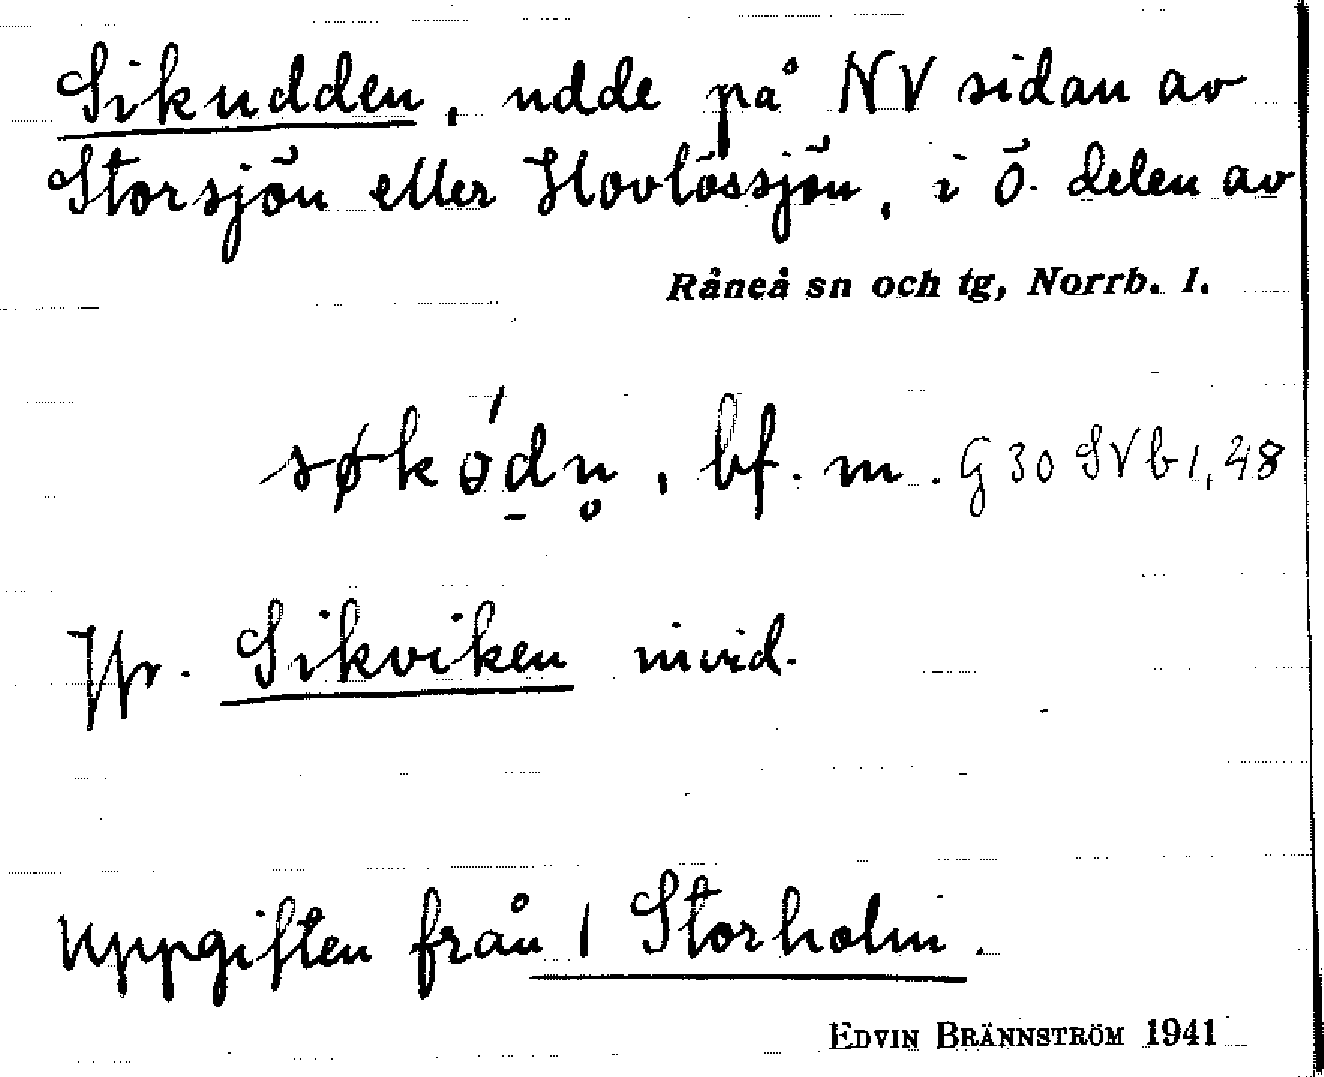 Sikudden, udde på NV sidan av
Storsjön eller Hovlössjön, i ö. delen av
Råneå sn och tg, Norrb. l.
bf. m. G 30 SVb 1, 48
Jfr. Sikviken invid.
Uppgiften från 1 Storholm.
EDVIN BRÄNNSTRÖM 1941